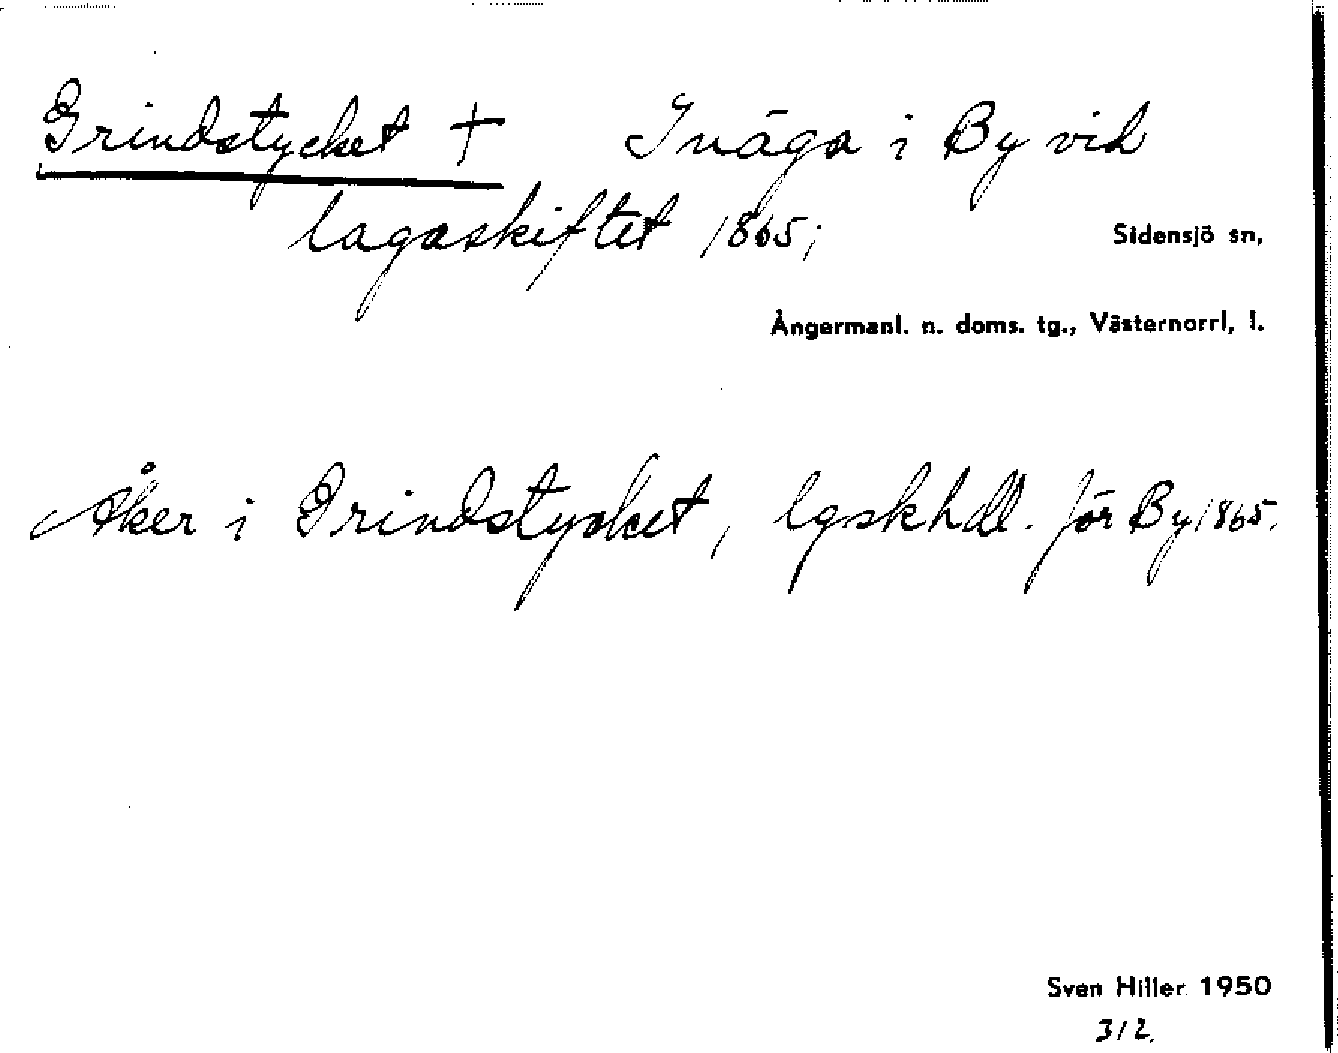 Grindstycket † Inäga i By vid
lagaskiftet 1865;
Sidensjö sn,
Ångermanl. n. doms. tg., Västernorrl, l.
Åker i Grindstycket, lgskhdl. för By 1865.
Sven Hiller 1950
3/2.